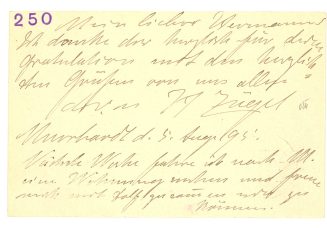 250
Mein lieber Hermann
Ich danke dir herzlich für deine
Gratulation mit den herzlich
sten Grüßen von uns allen
dein H Zügel
Murrhardt d. 5. Aug 95.
Nächste Woche fahre ich nach M.
eine Wohnung mieten und freue
mich mit zu
können.